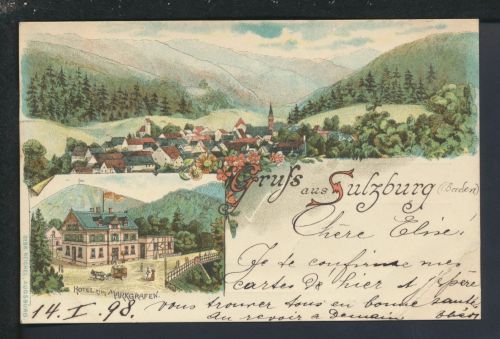 Gruss aus Sulzburg (Baden)
Chere Elise!
Je te confirme mes
cartes de hier et j'espère
HOTEL zum MARKGRAFEN.
14. I. 98. vous trouver tous en bonne santé
au revoir a Demain